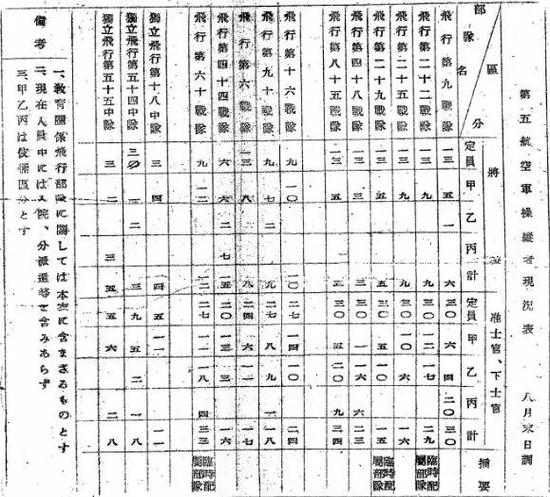 第五航空軍操縦者現況表　八月末日調
部隊名　區分
將校
定員　甲　乙　丙　計
准士官、下士官
定員　甲　乙　丙　計
摘要
飛行第九戰隊　一三　五　一　六　三〇　六　四　二〇　三〇
飛行第二十二戰隊　一三　九　九　三〇　一七　二九　臨時配屬部隊
飛行第二十五戰隊　一三　九　九　三〇　一〇　六　一六
飛行第二十九戰隊　一三　五　五　三〇　五　一〇　一五　臨時配屬部隊
飛行第八十五戰隊　一三
飛行第十六戰隊　九　一〇　一〇　二七　一四　一〇　二四
飛行第九十戰隊　九　七　二　九　二七　八　九　一　一八
飛行第六戰隊　一三　八　八　二四　六　一　一七
飛行第四十四戰隊　六　六　二　七　一五　二〇　一三　三　一六
飛行第六十戰隊　九　一二　一二　二七　一一　一八　四　三三　臨時配屬部隊
獨立飛行第十八中隊　三　四　四　五　一一　一一
獨立飛行第五十四中隊　一　二　三　九　五　二　一　八
獨立飛行第五十五中隊　三　二　三　五　五　六　二　八
備考
一、教育關係飛行部隊に關しては本表に含まざるものとす
二、現在人員中には入院、分派遣等を含みあらず
三、甲乙丙は伎倆區分とす